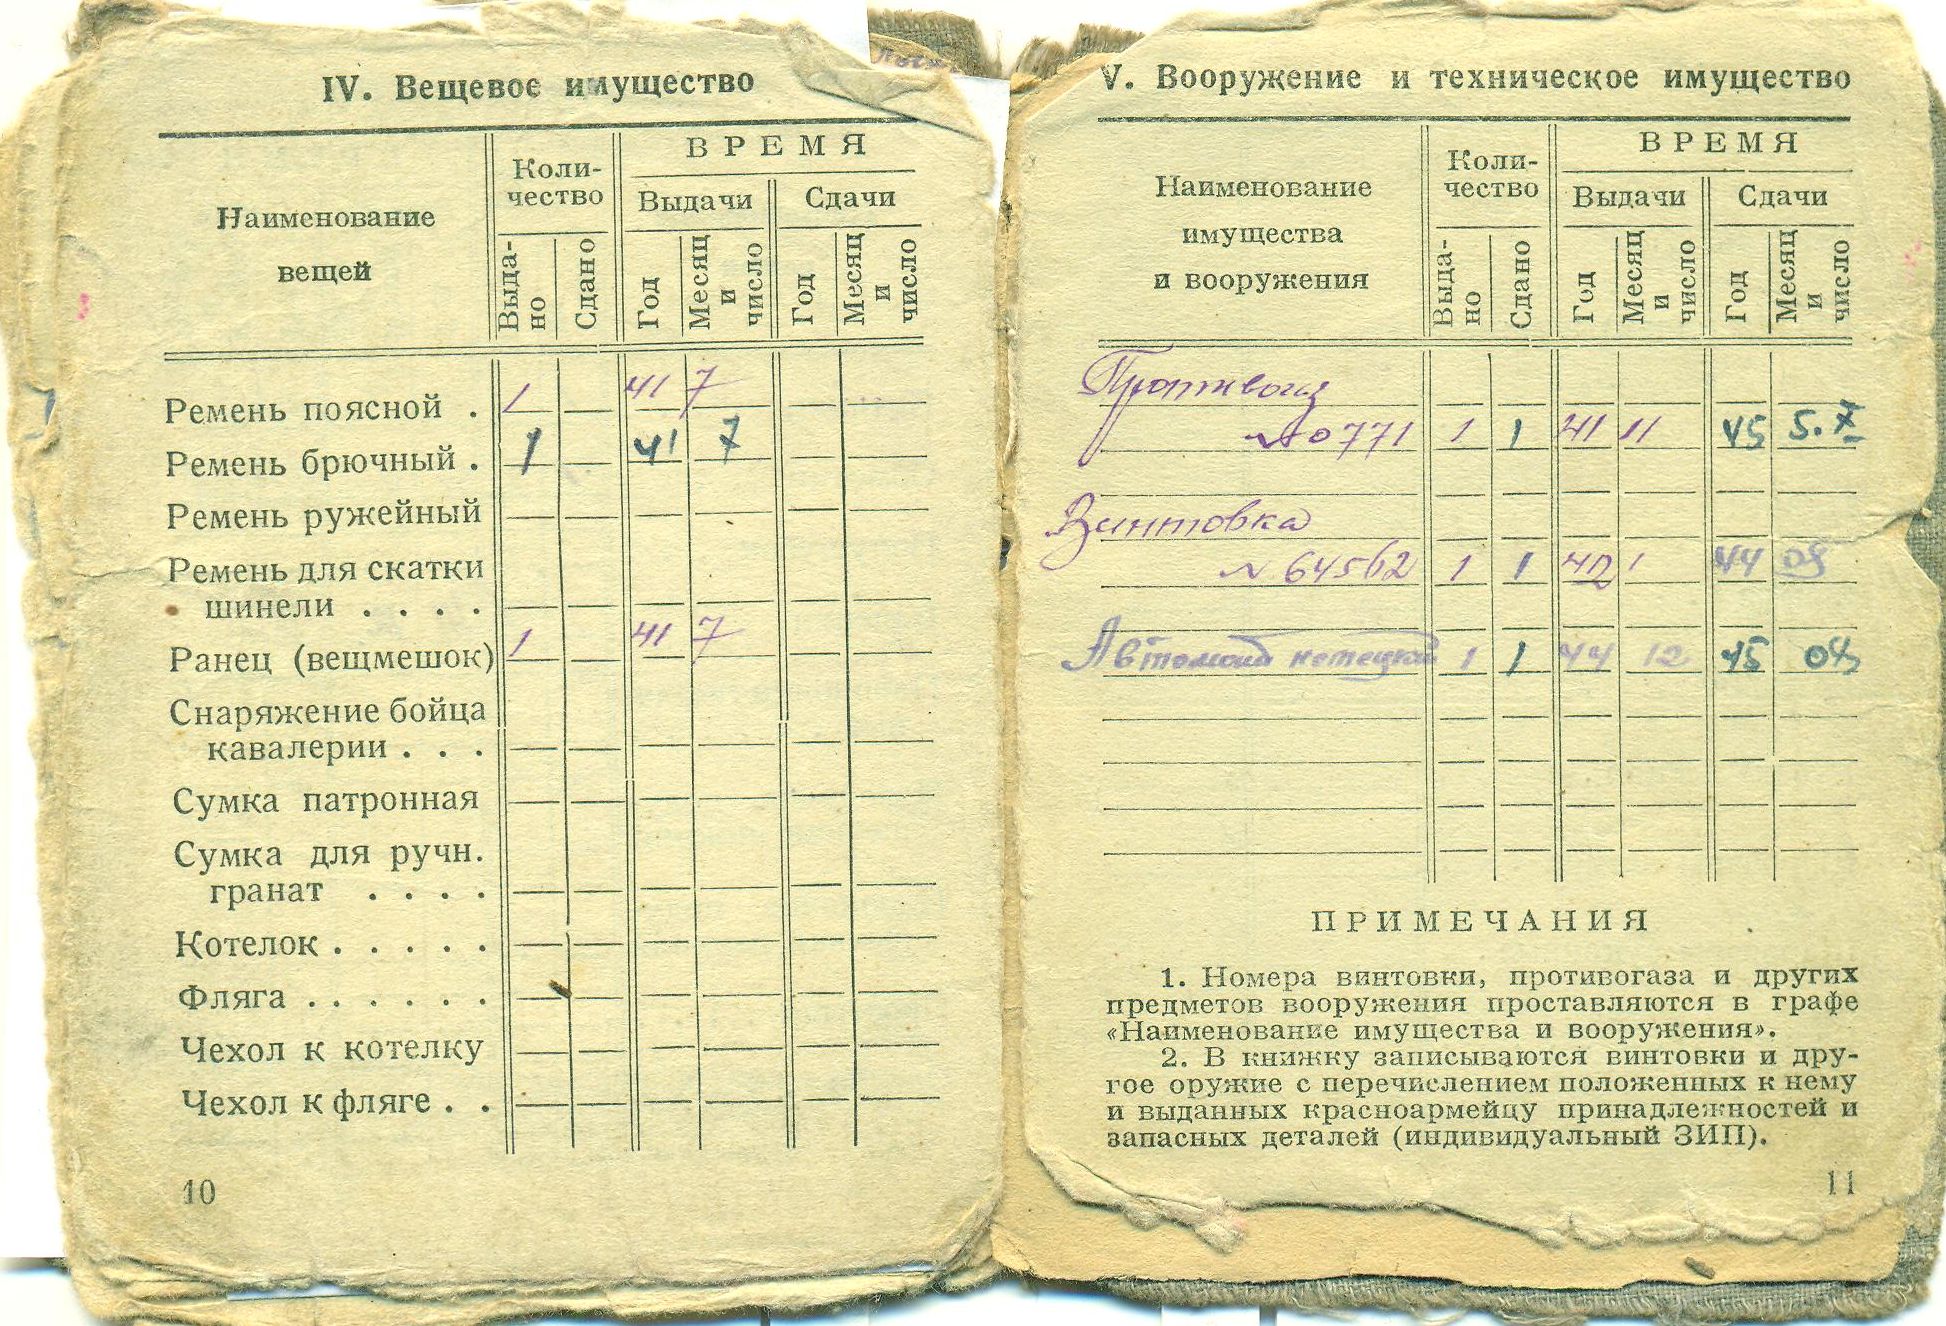 IV. Вещевое имущество
Наименование вещей
Коли-
чество
ВРЕМЯ
Выдачи
Сдачи
Выда-
но
Сдано
Год
Месяц
и
число
Год
Месяц
и
число
Ремень поясной . 1 41 7
Ремень брючный . 1 41 7
Ремень ружейный
Ремень для скатки
шинели . . . .
Ранец (вещмешок) 1 41 7
Снаряжение бойца
кавалерии . . .
Сумка патронная
Сумка для ручн.
гранат . . . .
Котелок . . . . .
Фляга . . . . . .
Чехол к котелку
Чехол к фляге . .
10
V. Вооружение и техническое имущество
Наименование
имущества
и вооружения
Коли-
чество
ВРЕМЯ
Выдачи
Сдачи
Выда-
но
Сдано
Год
Месяц
и
число
Год
Месяц
и
число
Противогаз
№ 0771 1 1 41 11 45 5.X
Винтовка
№ 64562 1 1 42 1 44 09
Автомат немецкий 1 1 44 12 45 04
ПРИМЕЧАНИЯ
1. Номера винтовки, противогаза и других
предметов вооружения проставляются в графе
«Наименование имущества и вооружения».
2. В книжку записываются винтовки и дру-
гое оружие с перечислением положенных к нему
и выданных красноармейцу принадлежностей и
запасных деталей (индивидуальный ЗИП).
11